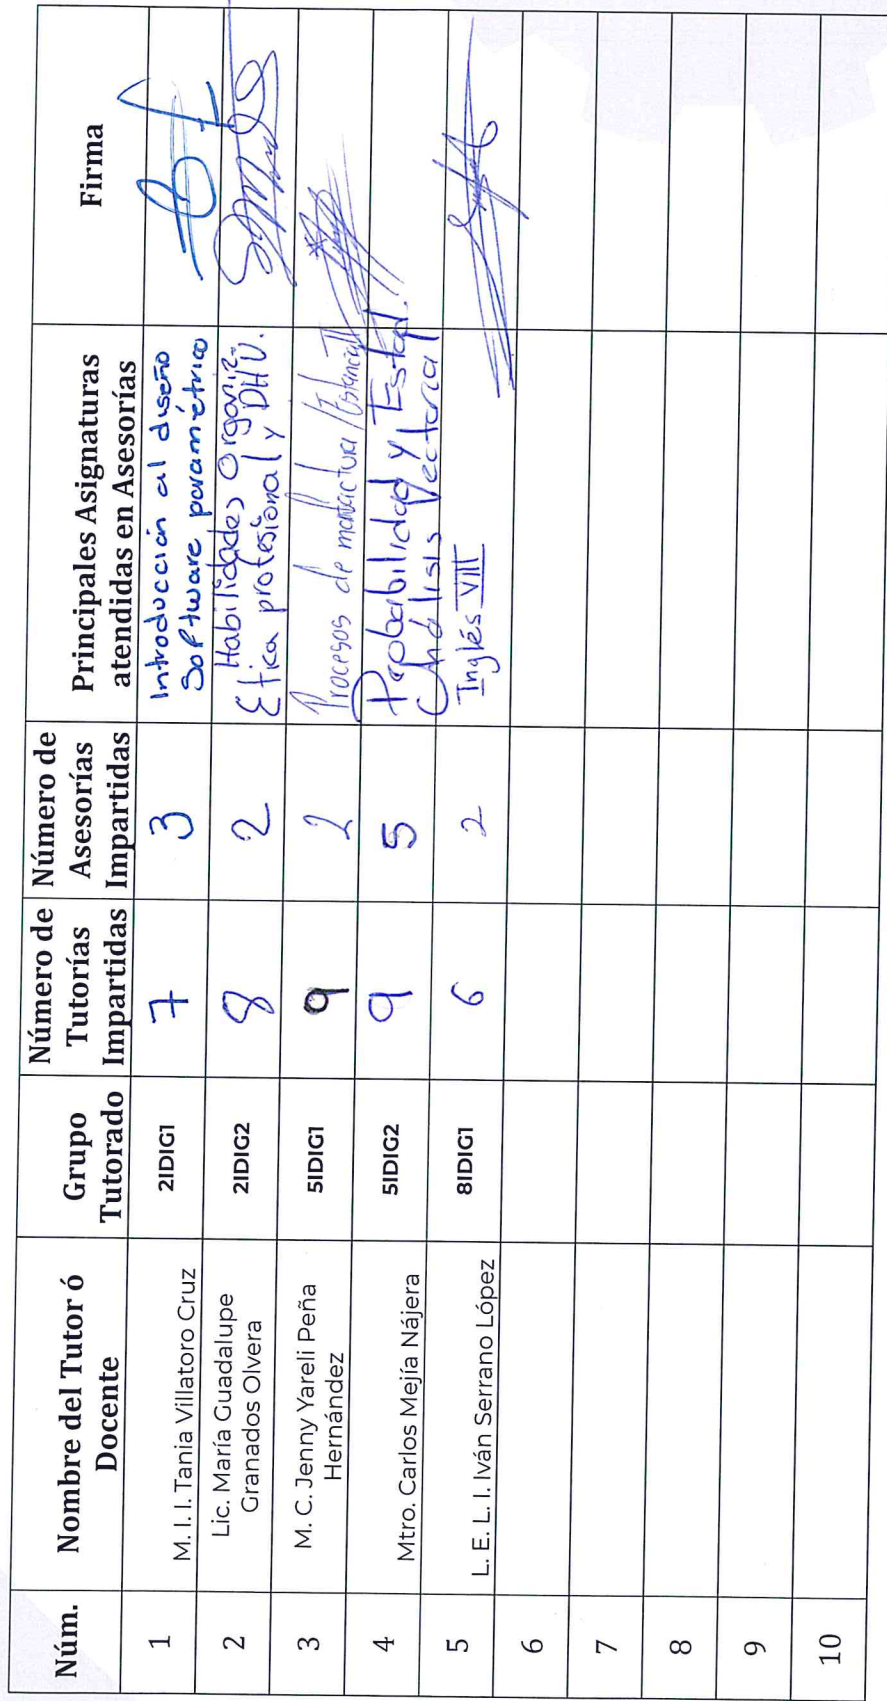 Núm.
Nombre del Tutor ó
Docente
Grupo
Tutorado
Número de
Tutorías
Impartidas
Número de
Asesorías
Impartidas
Principales Asignaturas
atendidas en Asesorías
Firma
1
M. I. I. Tania Villatoro Cruz
2IDIG1
7
3
Introducción al diseño
Software paramétrico
2
Lic. María Guadalupe
Granados Olvera
2IDIG2
8
2
Habilidades Organiz.
Etica profesional y DHV.
3
M. C. Jenny Yareli Peña
Hernández
5IDIG1
9
2
Procesos de manufactura / Estancia II
4
Mtro. Carlos Mejía Nájera
5IDIG2
9
5
Probabilidad y Estad. /
Análisis Vectorial
5
L. E. L. I. Iván Serrano López
8IDIG1
6
2
Inglés VIII
6
7
8
9
10